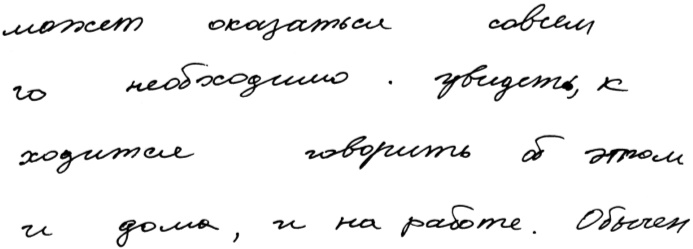 может оказаться совсем
го необходимо. увидеть, к
ходится говорить об этом
и дома, и на работе. Обычен